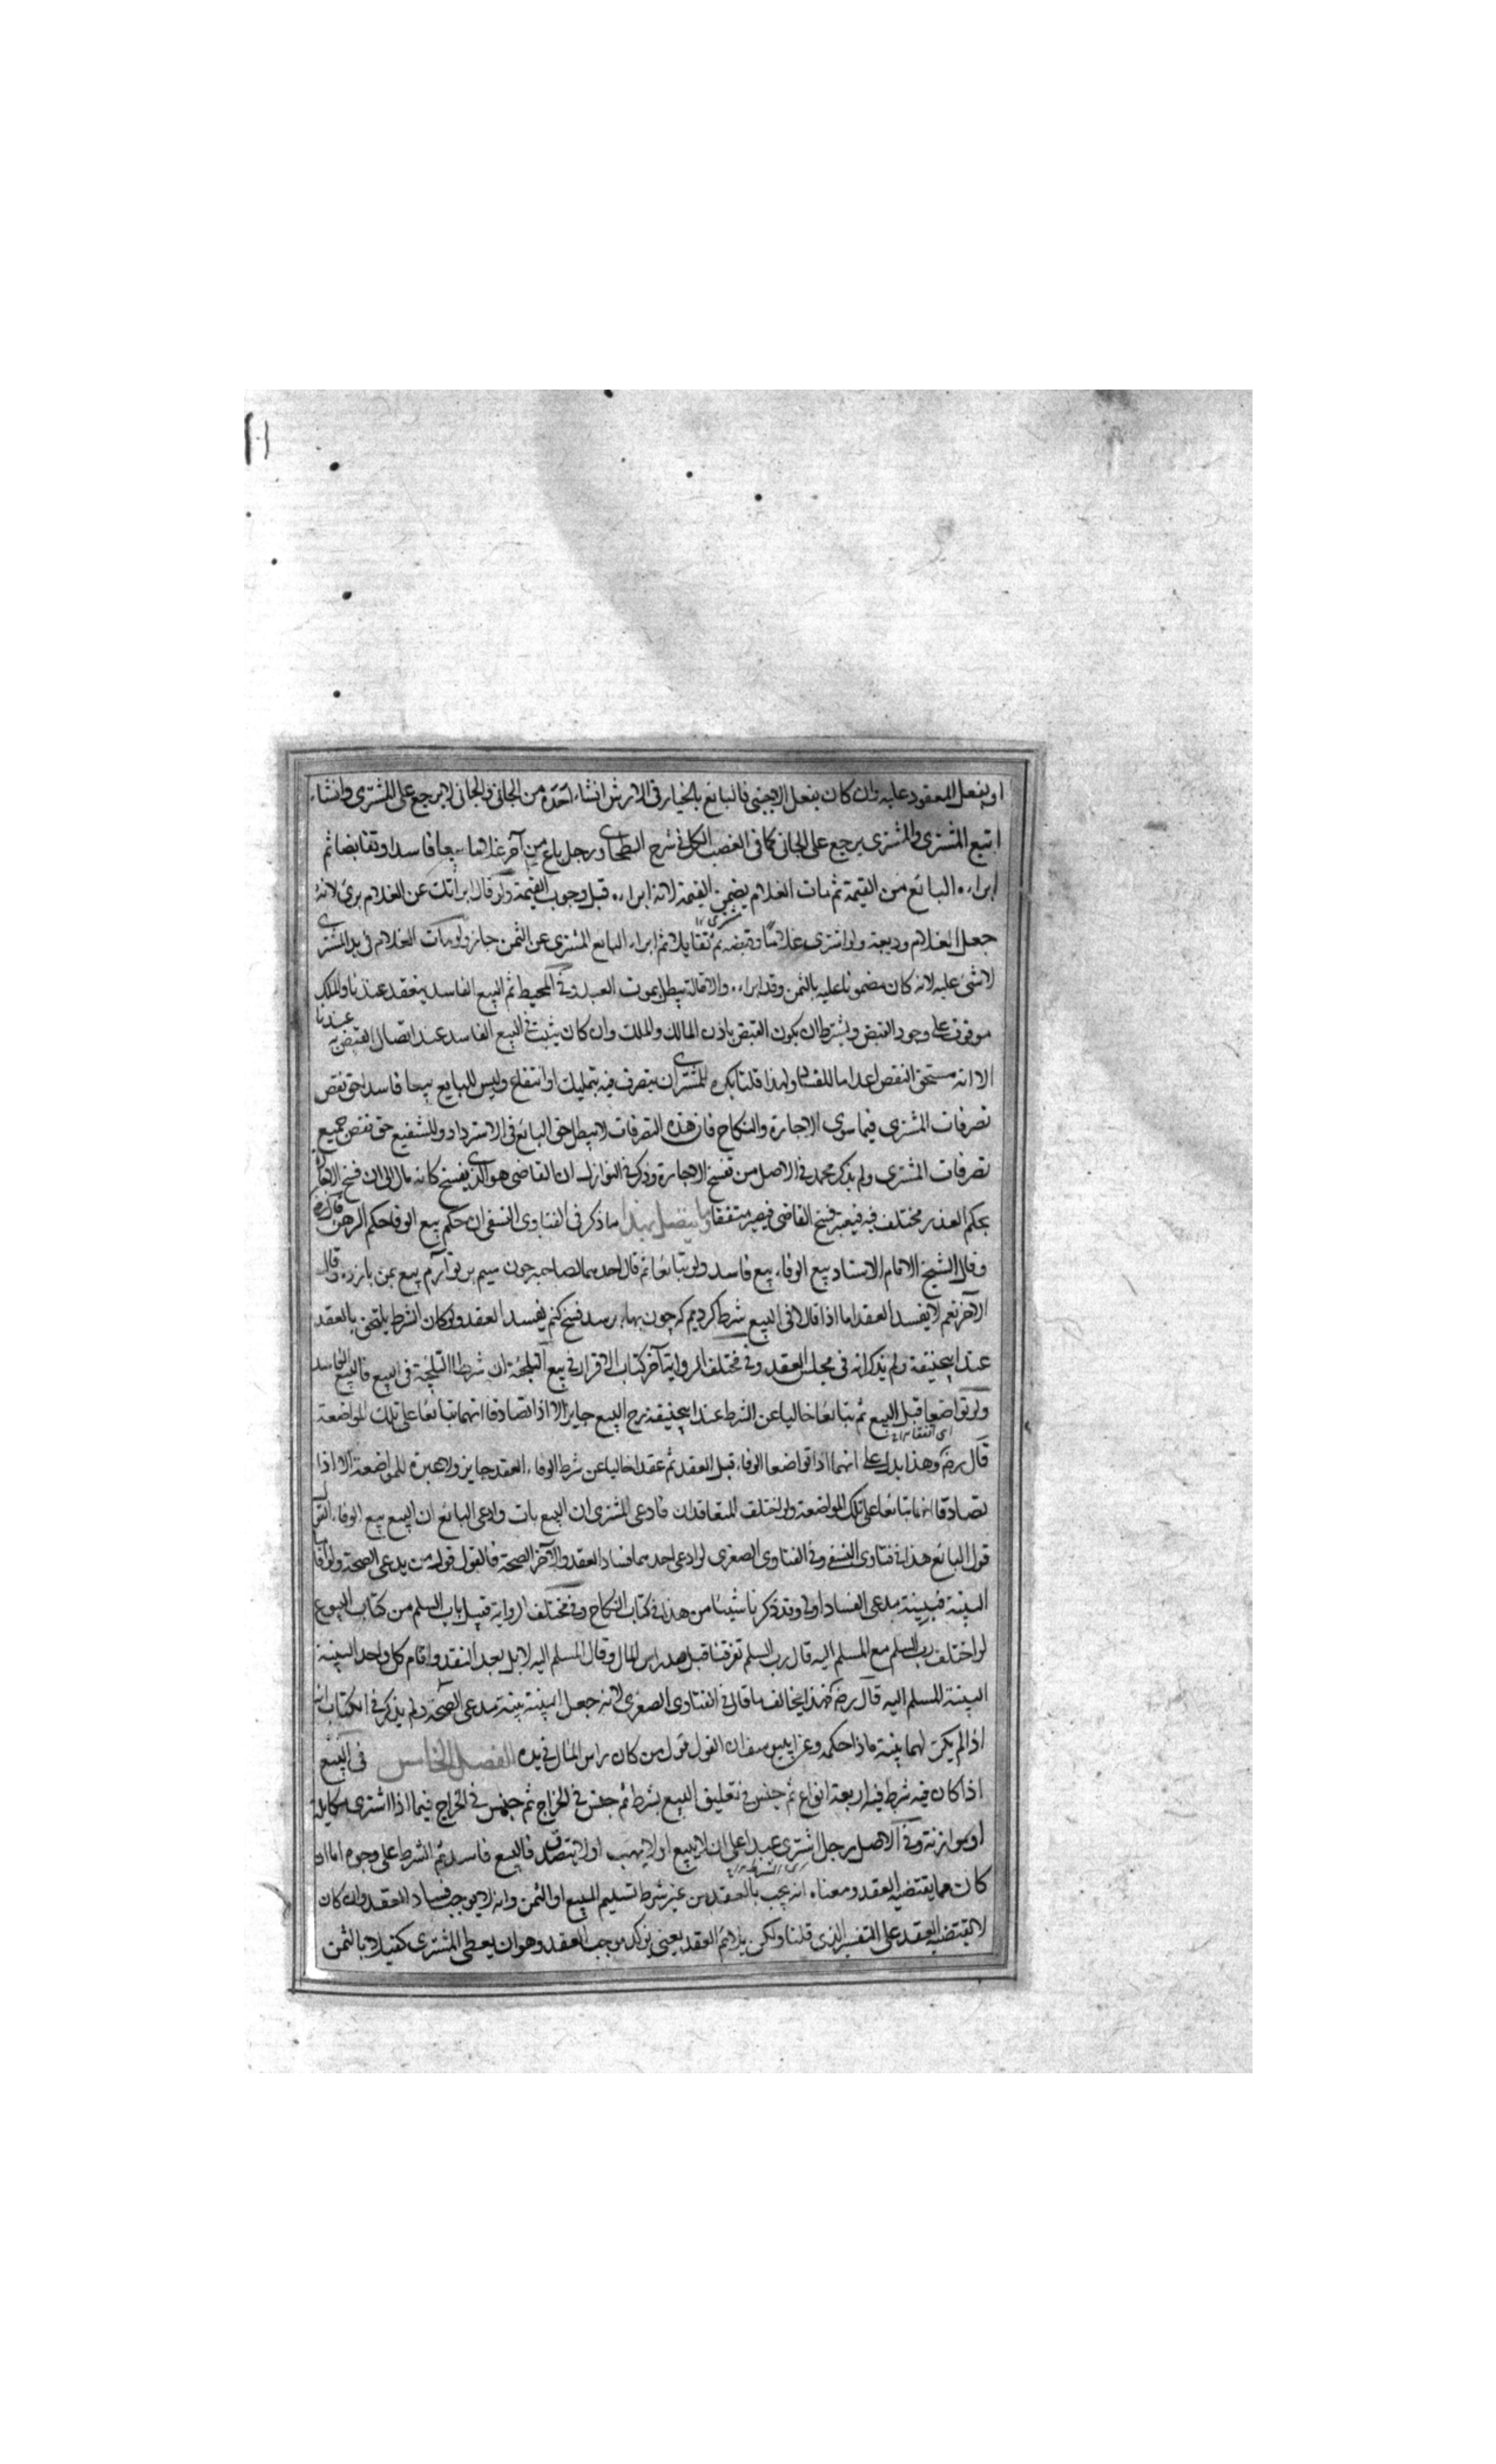 او بفعل المعقود عليه وان كان بفعل الاجنبى فالبائع بالخيار فى الارش انشاء اخذه من الجانى والجانى لا يرجع على المشترى وانشاء
اتبع المشترى والمشترى يرجع على الجانى كما فى الغصب الكل فى شرح الطحاوى رجل باع من آخر غلاما بيعا فاسدا وتقابضا ثم
ابراءه البائع من القيمة ثم مات الغلام يضمن القيمة لانه ابراءه قبل وجوب القيمة ولو قال ابراتك عن الغلام برئ لانه
جعل الغلام وديعة ولو اشترى غلاما وقبضه ثم تقايلا ثم ابراء البائع المشترى عن الثمن جاز ولو مات الغلام فى يد المشترى
لا شئ عليه لانه كان مضمونا عليه بالثمن وقد ابراءه والاقالة تبطل بموت العبد وفى المحيط ثم البيع الفاسد ينعقد عندنا والملك
موقوف على وجود القبض ويشترط ان يكون القبض باذن المالك والملك وان كان يثبت فى البيع الفاسد عند اتصال القبض به عندنا
الا انه مستحق النقض اعداما للفساد ولهذا قلنا يكره للمشترى ان يتصرف فيه بتمليك او انتفاع وليس للبايع بيعا فاسدا حق نقض
تصرفات المشترى فيما سوى الاجارة والنكاح فان هذه التصرفات لا يبطل حق البائع فى الاسترداد وللشفيع حق نقض جميع
تصرفات المشترى ولم يذكر محمد فى الاصل من تفسخ الاجارة وذكر فى النوازل ان القاضى هو الذى يفسخ كانه مال الى ان فسخ الاجارة
بحكم العذر مختلف فيه فيعتبر فسخ القاضى فيصير متفقا ومما يتصل بهذا ما ذكر فى الفتاوى النسفى ان حكم بيع الوفا حكم الرهن
وقال الشيخ الامام الاستاد بيع الوفاء بيع فاسد ولو تبائعا ثم قال احدهما لصاحبه چون سيم بر تو آرم بيع بمن باز ده وقال
الآخر نعم لا يفسد العقد اما اذا قالا فى البيع شرط كرديم كه چون بها برسد فسخ كنم يفسد العقد ولو كان الشرط يلتحق بالعقد
عند ابيحنيفة ولم يذكر انه فى مجلس العقد وفى مختلف الرواية آخر كتاب الاقرار فى بيع التلجئة ان شرطا التلجئة فى البيع فالبيع فاسد
ولو تواضعا قبل البيع ثم تبائعا خاليا عن الشرط عند ابيحنيفة رح البيع جايز الا اذا تصادقا انهما تبائعا على تلك المواضعة
قال رض وهذا يدل على انهما اذا تواضعا الوفاء قبل العقد ثم عقدا خاليا عن شرط الوفاء العقد جايز ولا عبرة للمواضعة الا اذا
تصادقا انهما تبائعا على تلك المواضعة ولو اختلف المتعاقدان فادعى المشترى ان البيع بات وادعى البائع ان البيع بيع الوفاء القول
قول البائع هذا فى فتاوى النسفى وفى الفتاوى الصغرى لو ادعى احدهما فساد العقد والآخر الصحة فالقول قول من يدعى الصحة ولو اقاما
البينة فبينة مدعى الفساد اولى وقد ذكرنا شيئا من هذا فى كتاب النكاح وفى مختلف الرواية قبيل باب السلم من كتاب البيوع
لو اختلف رب السلم مع المسلم اليه قال رب السلم تفرقنا قبل نقد راس المال وقال المسلم اليه لا بل بعد النقد واقام كل واحد البينة
البينة للمسلم اليه قال رض فهذا يخالف ما قال فى الفتاوى الصغرى لانه جعل البينة بينة مدعى الصحة ولم يذكر فى الكتاب انه
اذا لم يكن لهما بينة ماذا حكمه وعن ابييوسف ان القول قول من كان راس المال فى يده الفصل الخامس فى البيع
اذا كان فيه شرط فيه اربعة انواع ثم جنس فى تعليق البيع بشرط ثم جنس فى الخراج ثم جنس فى الخراج فيما اذا اشترى مكايلة
او موازنة وفى الاصل رجل اشترى عبدا على ان لا يبيع او لا يهب او لا يتصدق فالبيع فاسد ثم الشرط على وجوه اما ان
كان مما يقتضيه العقد ومعناه انه يجب بالعقد من غير شرط تسليم المبيع او الثمن وانه لا يوجب فساد العقد وان كان
لا يقتضيه العقد على التفسير الذى قلنا ولكن يلائم العقد يعنى يؤكد موجب العقد وهو ان يعطى المشترى كفيلا بالثمن